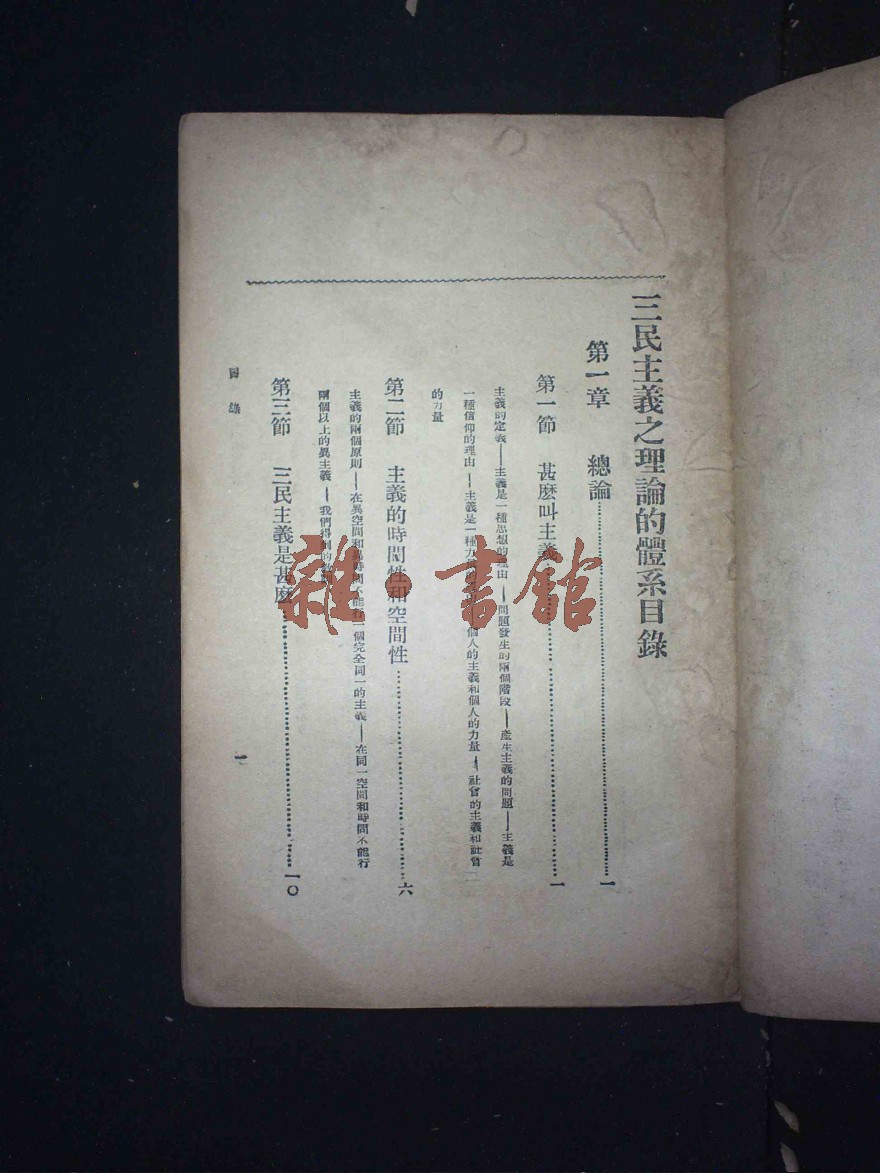 三民主義之理論的體系目錄
第一章 總論……一
第一節 甚麽叫主義……一
主義的定義——主義是一種思想的理由——問題發生的兩個階段——產生主義的問題——主義是
一種信仰的理由——主義是一種力 個人的主義和個人的力量——社會的主義和社會
的力量
第二節 主義的時間性和空間性……六
主義的兩個原則——在異空間和異時間不能行一個完全同一的主義——在同一空間和時間不能行
兩個以上的異主義——我們得到的
第三節 三民主義是甚麽……一〇
目錄
一
雜·書館